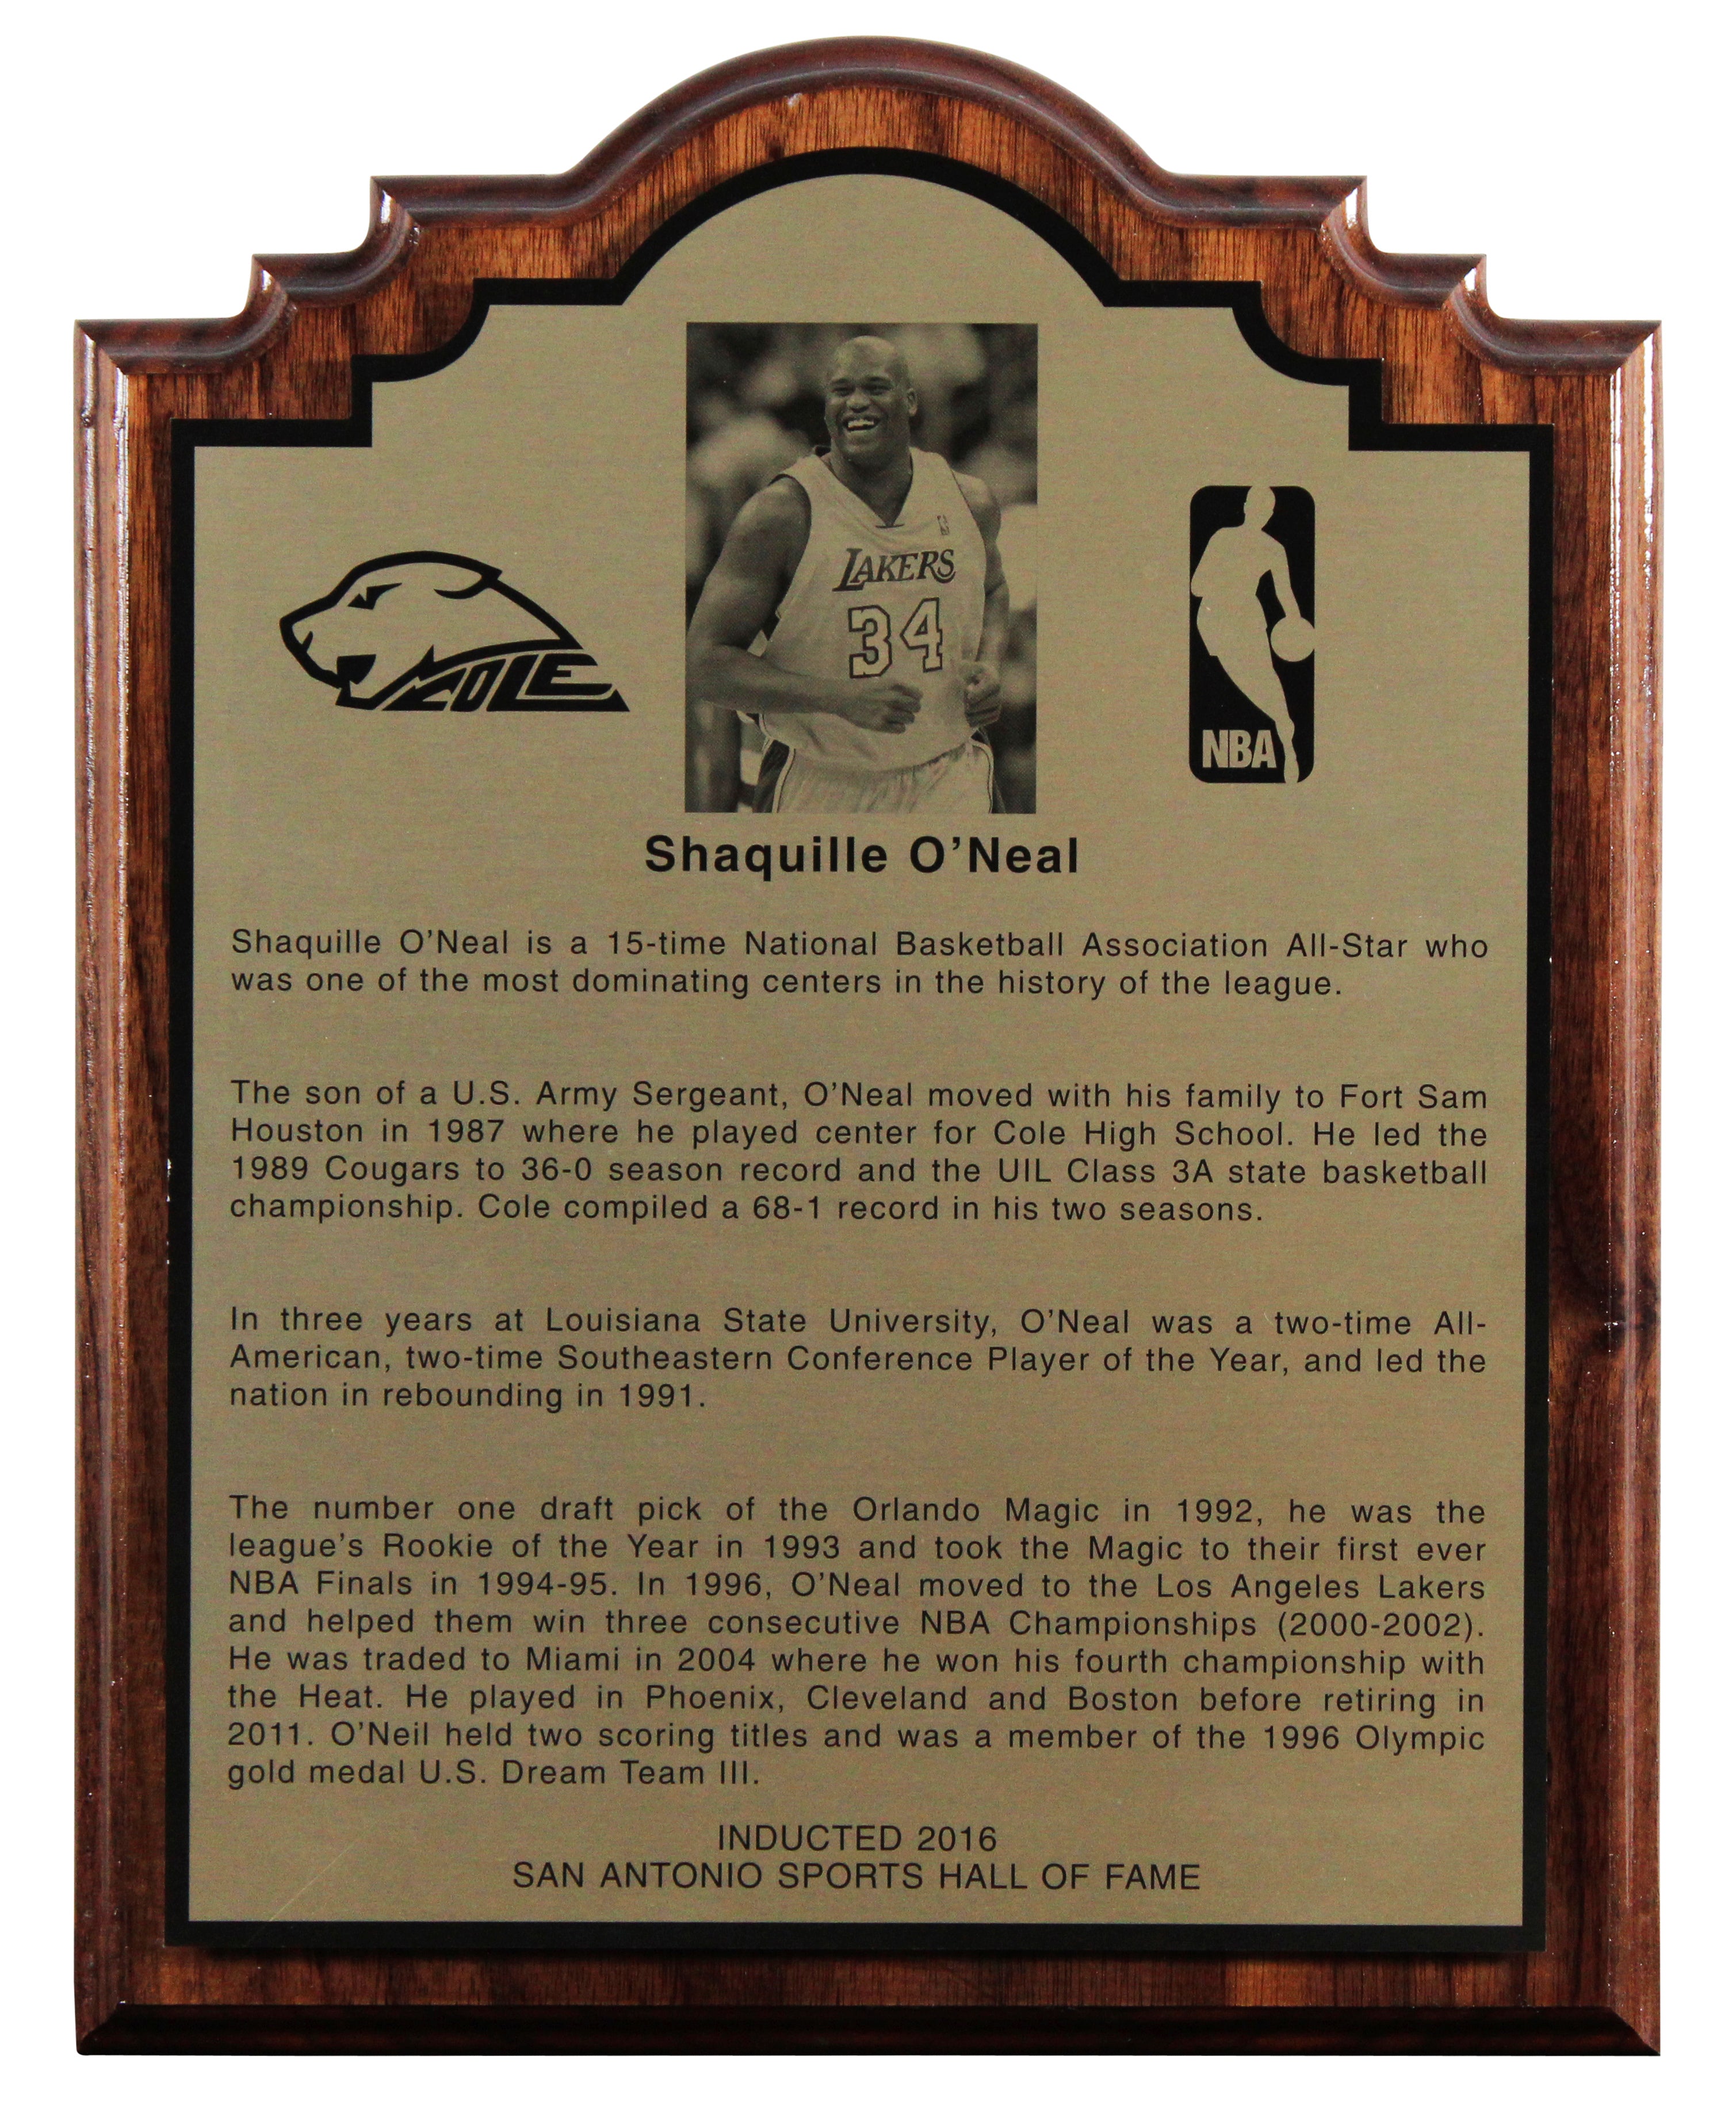 LAKERS
34
COLE
NBA
Shaquille O'Neal
Shaquille O'Neal is a 15-time National Basketball Association All-Star who
was one of the most dominating centers in the history of the league.
The son of a U.S. Army Sergeant, O'Neal moved with his family to Fort Sam
Houston in 1987 where he played center for Cole High School. He led the
1989 Cougars to 36-0 season record and the UIL Class 3A state basketball
championship. Cole compiled a 68-1 record in his two seasons.
In three years at Louisiana State University, O'Neal was a two-time All-
American, two-time Southeastern Conference Player of the Year, and led the
nation in rebounding in 1991.
The number one draft pick of the Orlando Magic in 1992, he was the
league's Rookie of the Year in 1993 and took the Magic to their first ever
NBA Finals in 1994-95. In 1996, O'Neal moved to the Los Angeles Lakers
and helped them win three consecutive NBA Championships (2000-2002).
He was traded to Miami in 2004 where he won his fourth championship with
the Heat. He played in Phoenix, Cleveland and Boston before retiring in
2011. O'Neil held two scoring titles and was a member of the 1996 Olympic
gold medal U.S. Dream Team III.
INDUCTED 2016
SAN ANTONIO SPORTS HALL OF FAME